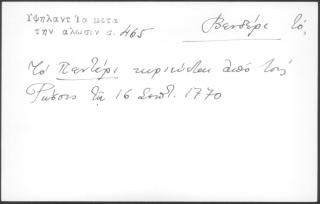 Υψηλαντ Τα μετα
την αλωσιν σ. 465
Βενδέρι τό,
Τό Πεντέρι κυριεύεται από τούς
Ρώσσους τη 16 Σεπτ. 1770